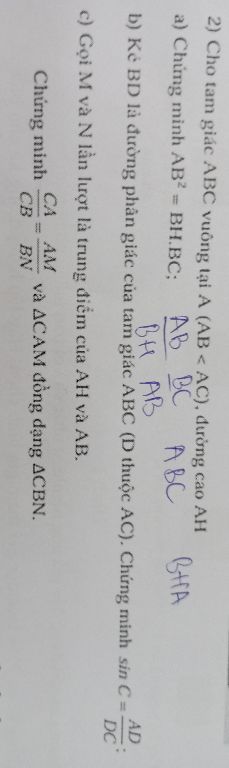 2) Cho tam giác ABC vuông tại A (AB < AC), đường cao AH
a) Chứng minh AB² = BH.BC;
AB BC ABC BHA
BH AB
b) Kẻ BD là đường phân giác của tam giác ABC (D thuộc AC). Chứng minh sin C = AD/DC;
c) Gọi M và N lần lượt là trung điểm của AH và AB.
Chứng minh CA/CB = AM/BN và ΔCAM đồng dạng ΔCBN.